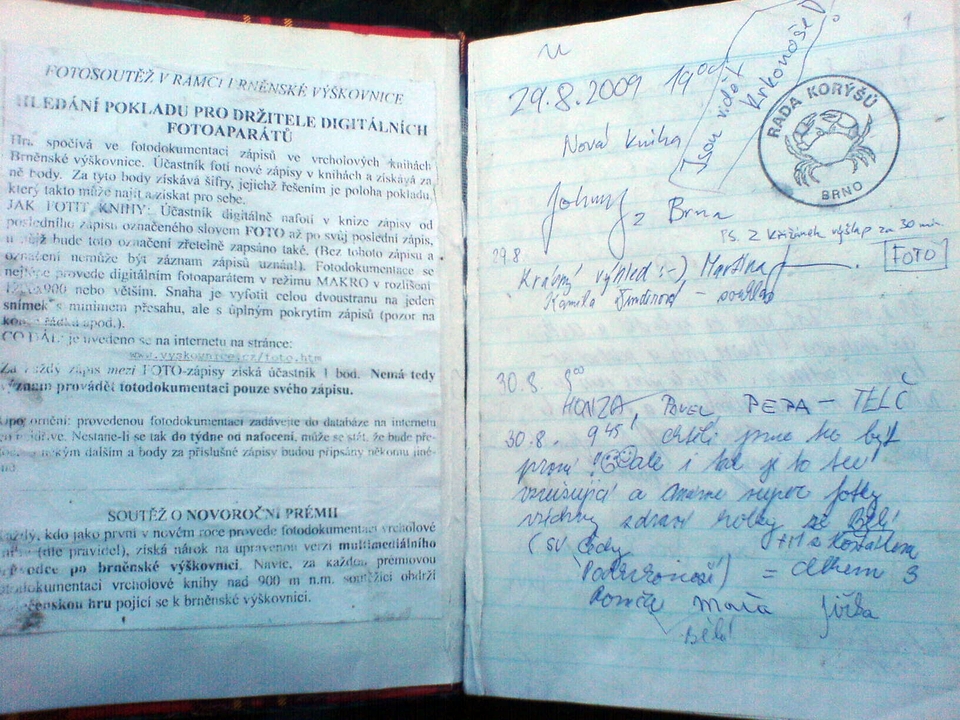 FOTOSOUTĚŽ V RÁMCI BRNĚNSKÉ VÝŠKOVNICE
HLEDÁNÍ POKLADU PRO DRŽITELE DIGITÁLNÍCH
FOTOAPARÁTŮ
Hra spočívá ve fotodokumentaci zápisů ve vrcholových knihách
Brněnské výškovnice. Účastník fotí nové zápisy v knihách a získává za
ně body. Za tyto body získává šifry, jejichž řešením je poloha pokladu,
který takto může najít a získat pro sebe.
JAK FOTIT KNIHY: Účastník digitálně nafotí v knize zápisy od
posledního zápisu označeného slovem FOTO až po svůj poslední zápis,
u nějž bude toto označení zřetelně zapsáno také. (Bez tohoto zápisu a
označení nemůže být záznam zápisů uznán!). Fotodokumentace se
nejlépe provede digitálním fotoaparátem v režimu MAKRO v rozlišení
900 nebo větším. Snaha je vyfotit celou dvoustranu na jeden
snímek s minimem přesahu, ale s úplným pokrytím zápisů (pozor na
konce řádků apod.).
CO DÁL: je uvedeno se na internetu na stránce:
www.vyskovnice.cz/foto.htm
Za každý zápis mezi FOTO-zápisy získá účastník 1 bod. Nemá tedy
význam provádět fotodokumentaci pouze svého zápisu.
Upozornění: provedenou fotodokumentaci zadávejte do databáze na internetu
Nestane-li se tak do týdne od nafocení, může se stát, že bude
někým dalším a body za příslušné zápisy budou připsány někomu
SOUTĚŽ O NOVOROČNÍ PRÉMII
Každý, kdo jako první v novém roce provede fotodokumentaci vrcholové
(dle pravidel), získá nárok na upravenou verzi multimediálního
průvodce po brněnské výškovnici. Navíc, za každou prémiovou
fotodokumentaci vrcholové knihy nad 900 m n.m. soutěžící obdrží
společenskou hru pojící se k brněnské výškovnici.
1
29.8.2009 19
Jsou vidět
Krkonoše!
RADA KORÝŠŮ
BRNO
Nová kniha
Johny z Brna
P.S. z Křižánek výšlap za 30 min.
FOTO
29.8
Krásný výhled :-) Martina
Kamila
30.8. 8⁰⁰
HONZA, PAVEL, PEPA – TELČ
30.8. 9⁴⁵ chtěli jsme to být
první ale i tak je to
vzrušující a máme super fotky
všechny zdraví holky ze Bělé
(SV Čechy
Podkrkonoší) = celkem 3
Romča Mája Jířka
Bělá!